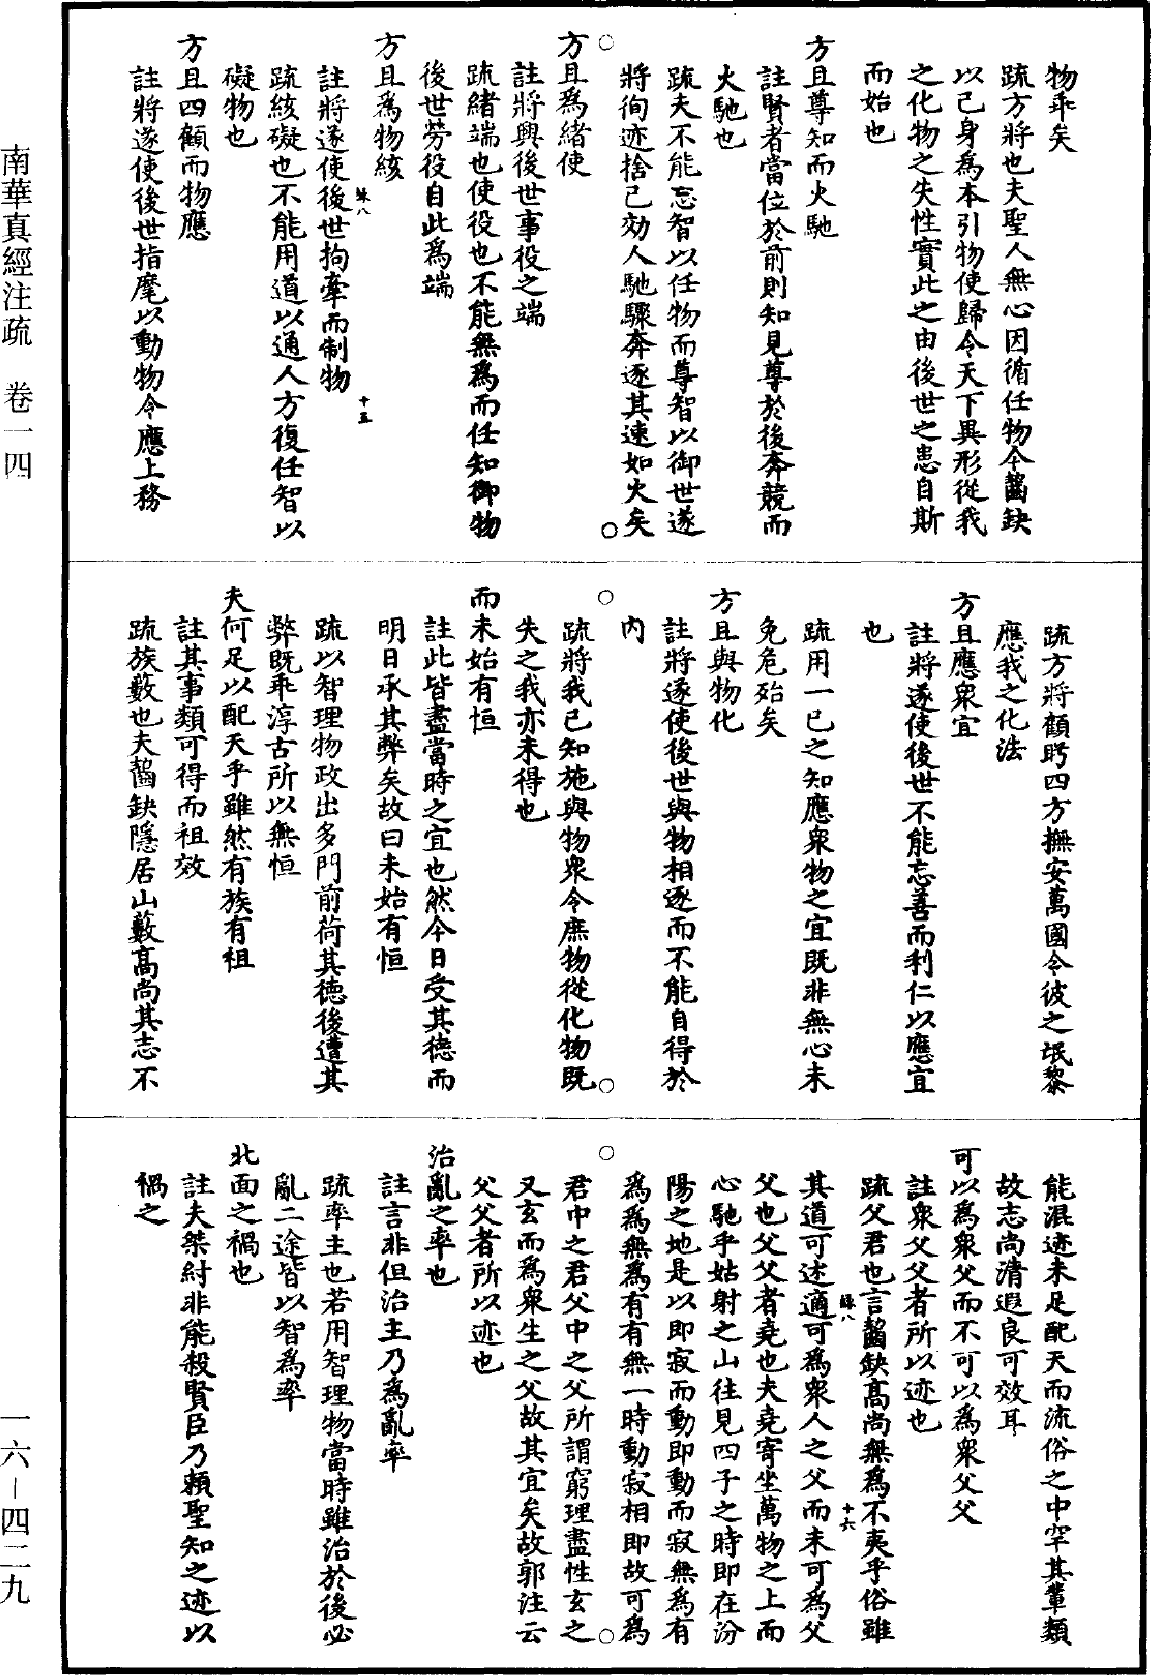 物乖矣
疏方將也夫聖人無心因循任物今齧缺
以己身為本引物使歸令天下異形從我
之化物之失性實此之由後世之患自斯
而始也
方且尊知而火馳
註賢者當位於前則知見尊於後奔競而
火馳也
疏夫不能忘智以任物而尊智以御世遂
將徇迹捨己効人馳驟奔逐其速如火矣
方且為緒使
註將興後世事役之端
疏緒端也使役也不能無為而任知御物
後世勞役自此為端
方且為物絯
註將遂使後世拘牽而制物
疏絯礙也不能用道以通人方復任智以
礙物也
方且四顧而物應
註將遂使後世指麾以動物令應上務
疏方將顧眄四方撫安萬國令彼之氓黎
應我之化法
方且應衆宜
註將遂使後世不能忘善而利仁以應宜
也
疏用一己之知應衆物之宜既非無心未
免危殆矣
方且與物化
註將遂使後世與物相逐而不能自得於
內
疏將我己知施與物衆令庶物從化物既
失之我亦未得也
而未始有恒
註此皆盡當時之宜也然今日受其德而
明日承其弊矣故曰未始有恒
疏以智理物政出多門前荷其德後遭其
弊既乖淳古所以無恒
夫何足以配天乎雖然有族有祖
註其事類可得而祖效
疏族藪也夫齧缺隱居山藪高尚其志不
能混迹未足配天而流俗之中罕其輩類
故志尚清遐良可效耳
可以為衆父而不可以為衆父父
註衆父父者所以迹也
疏父君也言齧缺高尚無為不夷乎俗雖
其道可述適可為衆人之父而未可為父
父也父父者堯也夫堯寄坐萬物之上而
心馳乎姑射之山往見四子之時即在汾
陽之地是以即寂而動即動而寂無為有
為為無為有有無一時動寂相即故可為
君中之君父中之父所謂窮理盡性玄之
又玄而為衆生之父故其宜矣故郭注云
父父者所以迹也
治亂之率也
註言非但治主乃為亂率
疏率主也若用智理物當時雖治於後必
亂二途皆以智為率
北面之禍也
註夫桀紂非能殺賢臣乃賴聖知之迹以
禍之
南華真經注疏　卷一四
一六－四二九